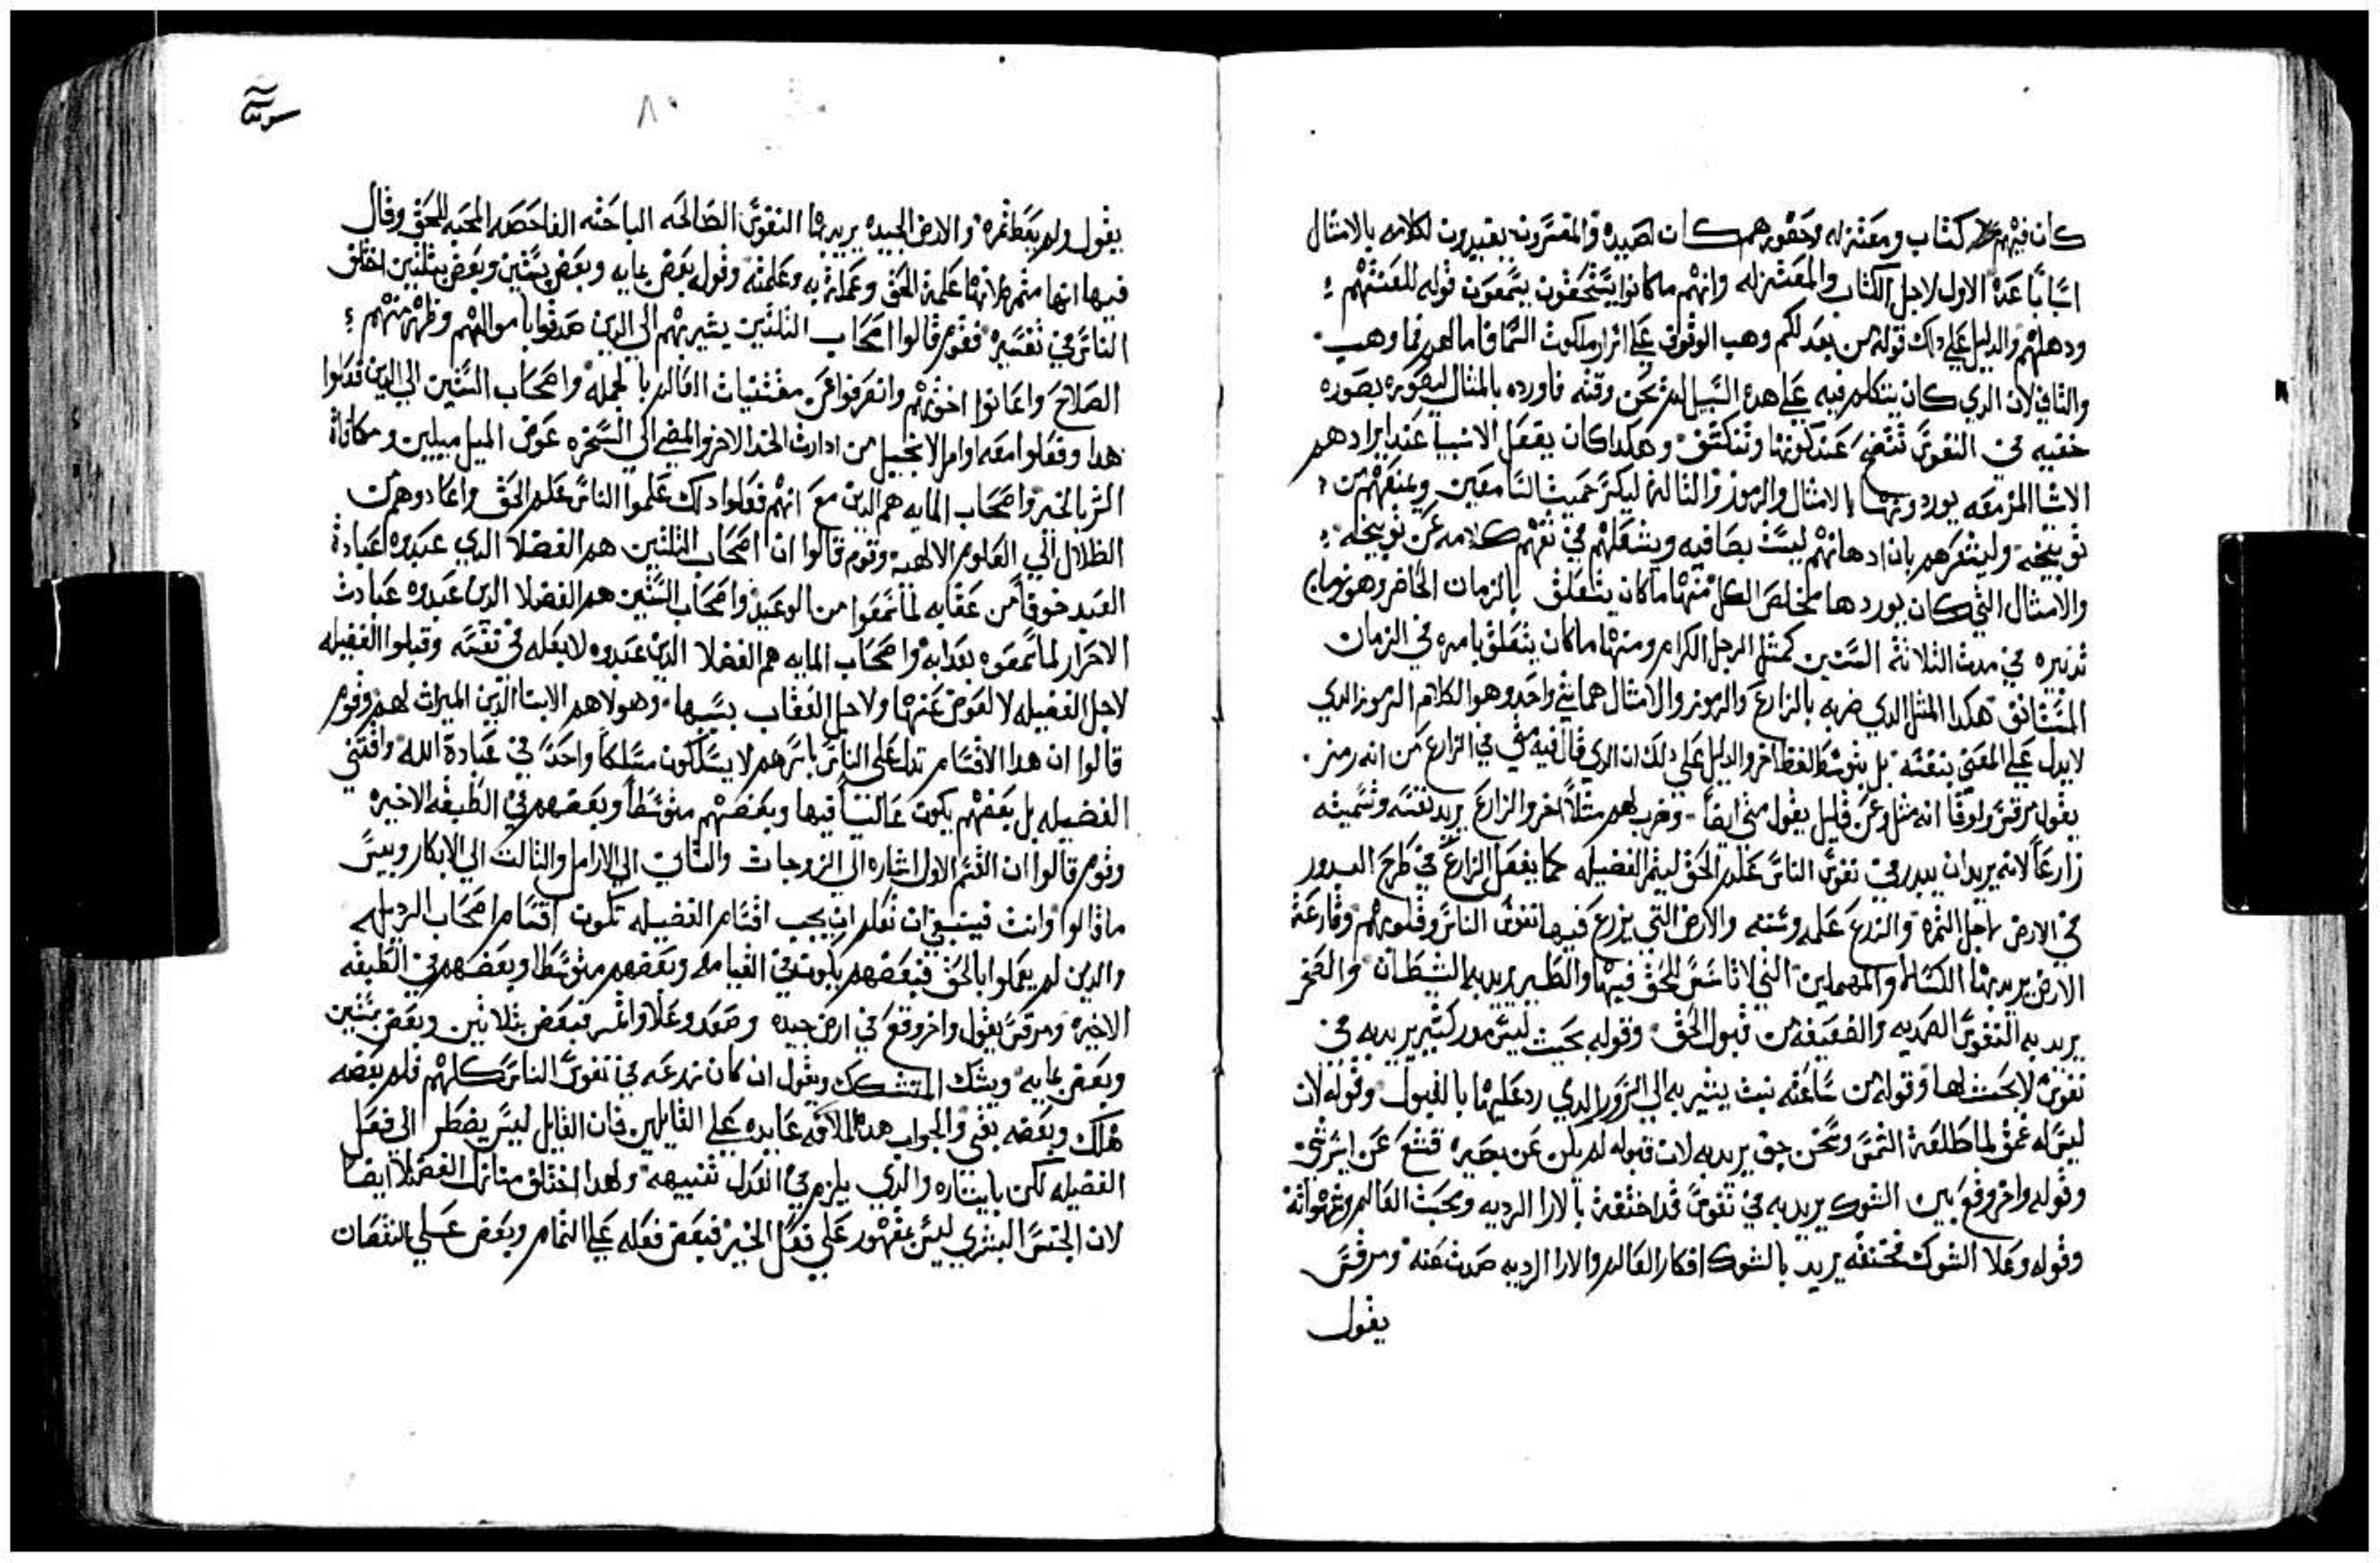 كان فيهم كتاب ومعتزله وحضورهم كان لصيده والمفسرون يفيدون لكلامه بالامثال
اسبابا عده الاول لاجل الكتاب والمعتزله وانهم ما كانوا يستحقون يسمعون قوله للعنتهم
ودهلهم والدليل علي دلك قوله من بعد لكم وهب الوقوف علي اسرار ملكوت السما فاما لهم فما وهب
والثاني لان الدي كان يتكلم فيه علي هده السبيل لم يحن وقته فاورده بالمثال ليصوره بصوره
خفيه في النفوس تتضح عند كونها وتنكشف وهكدا كان يفعل الانبيا عند ايرادهم
الاشيا المزمعه يوردونها بالامثال والرموز والثالث ليكسر حميت السامعين ويمنعهم من
توبيخه وليشعرهم بان ادهانهم ليست بصافيه ويشغلهم في تفهم كلامه عن توبيخه
والامثال التي كان يوردها مخلص الكل منها ما كان يتعلق بالزمان الحاضر وهو زمان
تدبيره في مدت الثلاثة السنين كمثل الرجل الكرام ومنها ما كان يتعلق بامره في الزمان
المستانف هكدا المثل الدي ضربه بالزارع والرموز والامثال هما شي واحد وهو الكلام المرموز الدي
لا يدل علي المعني بنفسه بل بتوسط لفظ اخر والدليل علي دلك ان الدي قال فيه متي في الزارع من انه رمز
يقول مرقس ولوقا انه مثل وعن قليل يقول متي ايضا وضرب لهم مثلا اخر والزارع يريد نفسه وتسميته
زارعا لانه يريد ان يبدر في نفوس الناس علم الحق ليثمر الفضيله كما يفعل الزارع في طرح البدور
في الارض لاجل الثمره والزرع علمه وسننه والارض التي يزرع فيها نفوس الناس وقلوبهم وقارعة
الارض يريد بها الكسالا والمهملين التي لا تاسس للحق فيها والطير يريد به الشيطان والصخر
يريد به النفوس الصديه والضعيفه من قبول الحق وقوله بحيت ليس مدر كتير يريد به في
نفوس لا بحث لها وقوله من ساعته نبت يشير به الي الزور الدي رد عليها بالقبول وقوله لان
ليس له عمق لما طلعة الشمس وسخن جف يريد به لان قبوله لم يكن عن بصيره قنتع عن ايسر شي
وقوله واخر وقع بين الشوك يريد به في نفوس قد اختنقة بالارا الرديه ومحبت العالم وشهواته
وقوله وعلا الشوك فخنقه يريد بالشوك افكار العالم والارا الرديه صدت عنه ومرقس
يقول
٨٠
يقول ولم يعط ثمره والارض الجيده يريد بها النفوس الصالحه الباحثه الفاحصه المحبه للحق وقال
فيها انها مثمره لانها علمة الحق وعملة به وعلمته وقوله بعض بمايه وبعض بستين وبعض بثلثين اختلف
الناس في تفسيره فقوم قالوا اصحاب الثلثين يشير بهم الي الدين صدقوا باموالهم وظهر منهم
الصلاح واعانوا اخوتهم وانصرفوا عن مقتنيات العالم بالجمله واصحاب الستين الي الدين فعلوا
هدا وفعلوا معه اوامر الانجيل من ادارت الخد الاخر والمضي الي السخره عوض الميل ميلين ومكافاة
الشر بالخير واصحاب المايه هم الدين مع انهم فعلوا دلك علموا الناس علم الحق واعادوهم من
الظلال الي العلوم الالهيه وقوم قالوا ان اصحاب الثلثين هم الفضلا الدي عبدوه عبادة
العبيد خوفا من عقابه لما سمعوا من الوعيد واصحاب الستين هم الفضلا الدين عبدوه عبادت
الاحرار لما سمعوه بعدابه واصحاب المايه هم الفضلا الدين عبدوه لا لعله في نفسه وقبلوا الفضيله
لاجل الفضيله لا لعوض عنها ولا جل العقاب بسببها وهولا هم الابنا الدين الميراث لهم وقوم
قالوا ان هدا الاقسام تدل علي الناس باسرهم لا يسلكون مسلكا واحدا في عبادة الله واقتني
الفضيله بل بعضهم يكون عاليا فيها وبعضهم متوسطا وبعضهم في الطبقه الاخيره
وقوم قالوا ان القسم الاول اشاره الي الزوجات والثاني الي الارامل والثالث الي الابكار وبيس
ما قالوا وانت فينبغي ان تعلم ان بحسب اقسام الفضيله تكون اقسام اصحاب الرديله
والدين لم يعملوا بالحق فبعضهم يكون في القيامه وبعضهم متوسطا وبعضهم في الطبقه
الاخيره ومرقس يقول واخر وقع في ارض جيده وصعد وعلا واثمر فبعض بثلاثين وبعض بستين
وبعض بمايه ويشك المتشكك ويقول ان كان زرعه في نفوس الناس كلهم فلم بعضه
هلك وبعضه بقي والجواب هده الافه عايده علي القايلين فان القايل ليس يضطر الي فعل
الفضيله لكن بايتاره والدي يلزم في العدل تنبيهه ولهدا اختلف منازل الفضلا ايضا
لان الجنس البشري ليس بمقهور علي فعل الخير فبعض فعله علي التمام وبعض علي النقصان